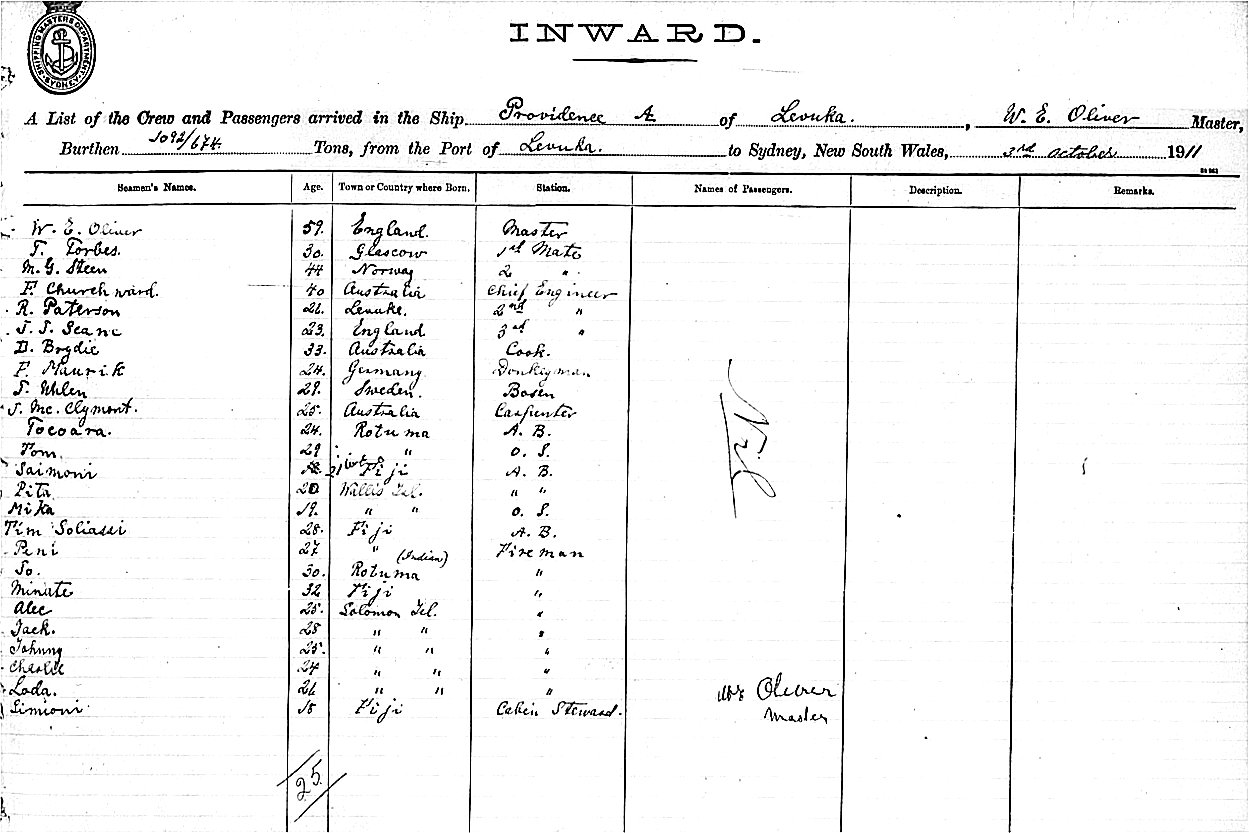 SHIPPING MASTERS DEPARTMENT SYDNEY
INWARD.
A List of the Crew and Passengers arrived in the Ship Providence A of Levuka. , W. E. Oliver Master,
Burthen 1092/674 Tons, from the Port of Levuka. to Sydney, New South Wales, 3rd October 1911
Seamen's Names. Age. Town or Country where Born. Station. Names of Passengers. Description. Remarks.
W. E. Oliver 59. England. Master
T. Forbes. 30. Glascow 1st Mate
M. G. Steen 44 Norway 2 "
F. Churchward. 40 Australia Chief Engineer
R. Paterson 26. Levuka. 2nd "
J. J. Seane 23. England 3rd "
D. Brydie 33. Australia Cook.
F. Maurik 24. Germany Donkeyman
J. Uhlen 29. Sweden. Bosen
J. Mc. Clymont. 25. Australia Carpenter
Tocoara. 24. Rotuma A. B.
Tom. 29 " O. S.
Saimoni 21 Fiji A. B.
Pita 20 Wallis Isl. " "
Mika 19. " " O. S.
Tim Soliassi 28. Fiji A. B.
Peni 27 " (Indian) Fireman
Jo. 30. Rotuma "
Minute 32 Fiji "
Alec 25. Solomon Isl. "
Jack. 28 " " "
Johnny 25. " " "
Charlie 24 " " "
Loda. 26 " " "
Simioni 18 Fiji Cabin Steward.
Nil
WE Oliver
Master
25